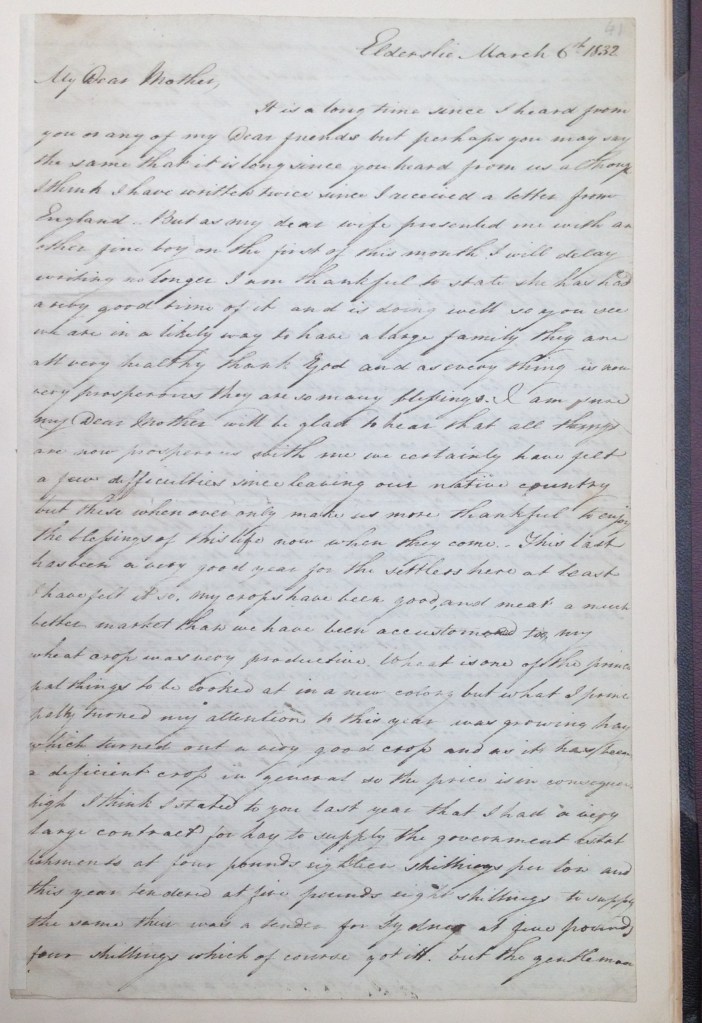 41
Elderslie March 6th 1832
My Dear Mother,
It is a long time since I heard from
you or any of my Dear friends but perhaps you may say
the same that it is long since you heard from us a though
I think I have written twice since I received a letter from
England - But as my dear wife presented me with an
other fine boy on the first of this month I will delay
writing no longer I am thankful to state she has had
a very good time of it and is doing well so you see
we are in a likely way to have a large family they are
all very healthy thank God and as every thing is now
very prosperous they are so many blessings. I am sure
my Dear Mother will be glad to hear that all things
are now prosperous with me we certainly have felt
a few difficulties since leaving our native country
but these when over only make us more thankful to enjoy
the blessings of this life now when they come. - This last
has been a very good year for the settlers here at least
I have felt it so, my crops have been good, and meat a much
better market than we have been accustomed to, my
wheat crop was very productive. Wheat is one of the princi
pal things to be looked at in a new colony but what I
turned my attention to this year was growing hay
which turned out a very good crop and as it has been
a deficient crop in general so the price is in consequen
high I think I stated to you last year that I had a very
large contract for hay to supply the government estab
lishments at four pounds eighteen shillings per ton and
this year tendered at five pounds eight shillings to supply
the same their was a tender for Sydney at five pounds
four shillings which of course got it. but the gentleman